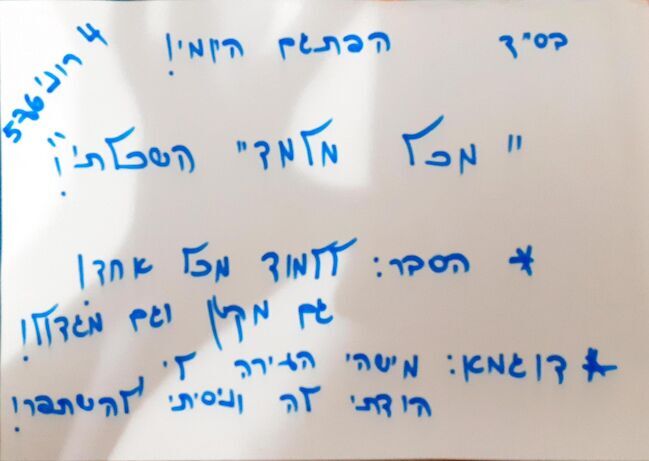 בס"ד הפתגם היומי!
"מכל מלמד" השכלתי"!
* הסבר: ללמוד מכל אחד!
גם מקטן וגם מגדול!
* דוגמא: מישהי העירה לי
הודתי לה וניסיתי להשתפר!
4 רוני 576